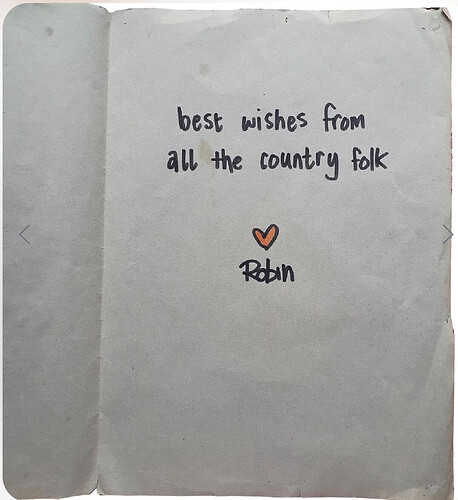 best wishes from
all the country folk
Robin